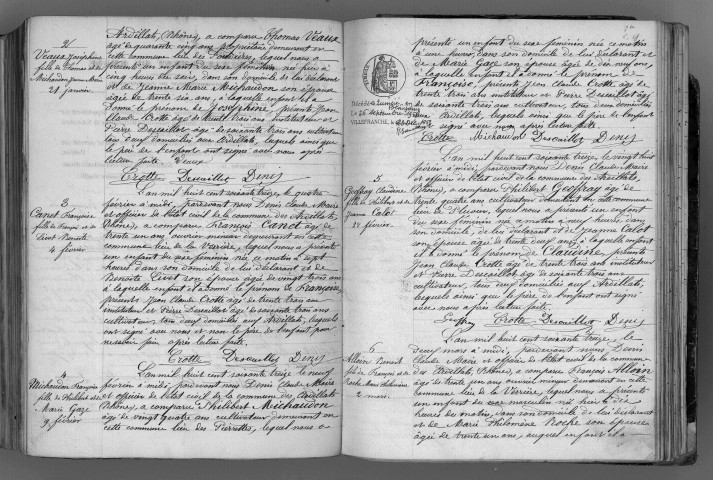 2
Veaux Joséphine
fille de Thomas et de
Michaudon Jeanne Marie
21 janvier
Ardillats, (Rhône), a comparu Thomas Veaux
âgé de quarante cinq ans propriétaire demeurant en
cette commune lieu des lequel nous a
présenté un enfant du sexe féminin née
cinq heures du soir, dans son domicile de lui déclarant
et de Jeanne Marie Michaudon son épouse
âgée de trente six ans, à laquelle enfant il a
donné le prénom de Joséphine, présents Jean
Claude Crotte âgé de trente trois ans instituteur et
Pierre Descaillot âgé de soixante trois ans cultivateur
tous deux domiciliés aux Ardillats, lesquels ainsi que
le père de l'enfant ont signé avec nous après
lecture faite. Veaux
Crotte Descaillot Denis
3
Canet Françoise
fille de François et de
Livet Benoite
4 février
L'an mil huit cent soixante treize, le quatre
février à midi, pardevant nous Denis Claude Maire
et officier de l'état civil de la commune des Ardillats,
(Rhône), a comparu François Canet âgé de
trente un ans, ouvrier mineur demeurant en cette
commune lieu de la Verrière, lequel nous a présenté
un enfant du sexe féminin née, ce matin à sept
heures dans son domicile de lui déclarant et de
Benoite Livet son épouse âgée de vingt trois ans
à laquelle enfant il a donné le prénom de Françoise,
présents Jean Claude Crotte âgé de trente trois ans
instituteur et Pierre Descaillot âgé de soixante trois ans
cultivateur, tous deux domiciliés aux Ardillats, lesquels
ont signé avec nous et non le père de l'enfant pour
ne savoir foin après lecture faite.
Crotte Descaillot Denis
4
Michaudon Françoise
fille de Philibert et de
Marie Gaze
9 février
L'an mil huit cent soixante treize, le neuf
février à midi, pardevant nous Denis Claude Maire
et officier de l'état civil de la commune des Ardillats
(Rhône), a comparu Philibert Michaudon
âgé de vingt quatre ans cultivateur demeurant en
cette commune lieu des Pierrettes, lequel nous a
présenté un enfant du sexe féminin née ce matin
à une heure, dans son domicile de lui déclarant et
de Marie Gaze son épouse âgée de dix neuf ans,
à laquelle enfant il a donné le prénom de
Françoise, présents Jean Claude Crotte âgé de
trente trois ans instituteur et Pierre Descaillot âgé
de soixante trois ans cultivateur, tous deux domiciliés
aux Ardillats, lesquels ainsi que le père de l'enfant
ont signé avec nous après lecture faite.
Crotte Michaudon Descaillot Denis
Décédée à
Le 26 septembre
VILLEFRANCHE, le
5
Geoffray Claudine
fille de Philibert et de
Jeanne Calot
28 février
L'an mil huit cent soixante treize, le vingt huit
février à midi, pardevant nous Denis Claude Maire
et officier de l'état civil de la commune des Ardillats,
(Rhône), a comparu Philibert Geoffray âgé de
trente quatre ans cultivateur demeurant en cette commune
lieu de lequel nous a présenté un enfant
du sexe féminin née ce matin à neuf heures, dans
son domicile, de lui déclarant et de Jeanne Calot
son épouse âgée de trente deux ans, à laquelle enfant
il a donné le prénom de Claudine, présents
Jean Claude Crotte âgé de trente trois ans instituteur
et Pierre Descaillot âgé de soixante trois ans
cultivateur, tous deux domiciliés aux Ardillats,
lesquels ainsi que le père de l'enfant ont signé
avec nous après lecture faite.
Geoffray Crotte Descaillot Denis
6
Alloin Benoit
fils de François et de
Roche Marie Philomène
2 mars
L'an mil huit cent soixante treize, le
deux mars à midi, pardevant nous Denis
Claude Maire et officier de l'état civil de la commune
des Ardillats, (Rhône), a comparu François Alloin
âgé de trente un ans ouvrier mineur demeurant en cette
commune lieu de la Verrière, lequel nous a présenté
un enfant du sexe masculin né hier à dix
heures du matin, dans son domicile de lui déclarant
et de Marie Philomène Roche son épouse
âgée de trente un ans, auquel enfant il a